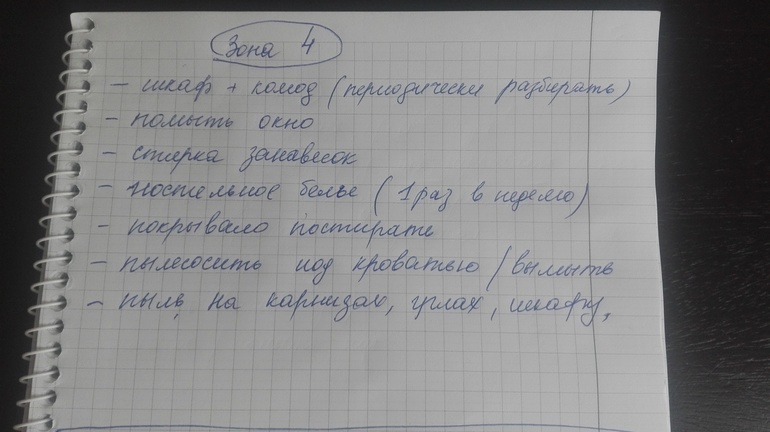 Зона 4
- шкаф + комод (периодически разбирать)
- помыть окно
- стирка занавесок
- постельное белье (1 раз в неделю)
- покрывало постирать
- пылесосить под кроватью / вымыть
- пыль на карнизах, углах, шкафу,